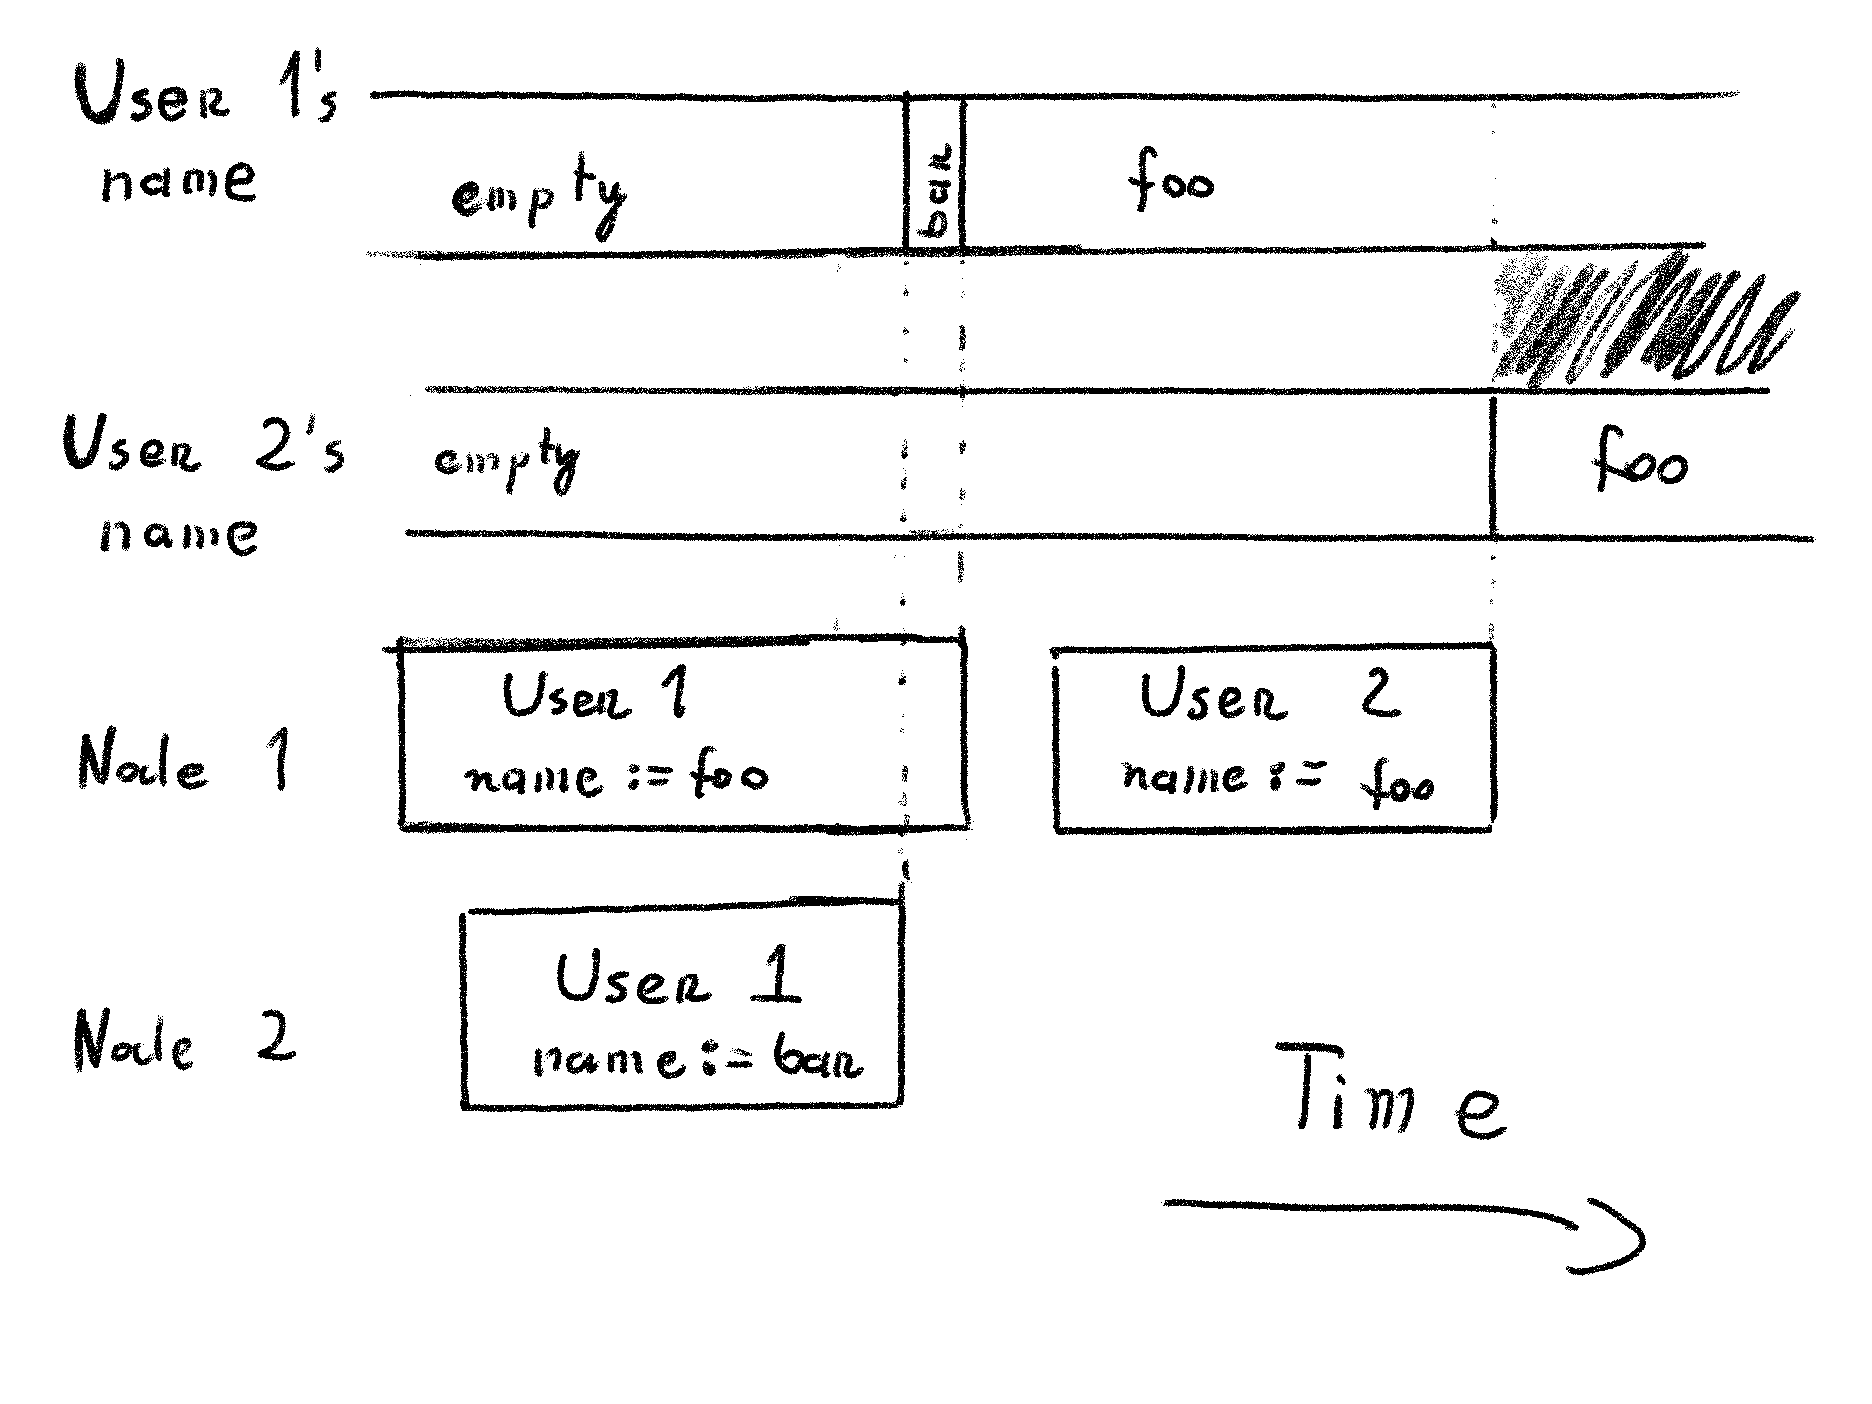 User 1's
name
empty
bar
foo
User 2's
name
empty
foo
Node 1
User 1
name := foo
User 2
name := foo
Node 2
User 1
name := bar
Time